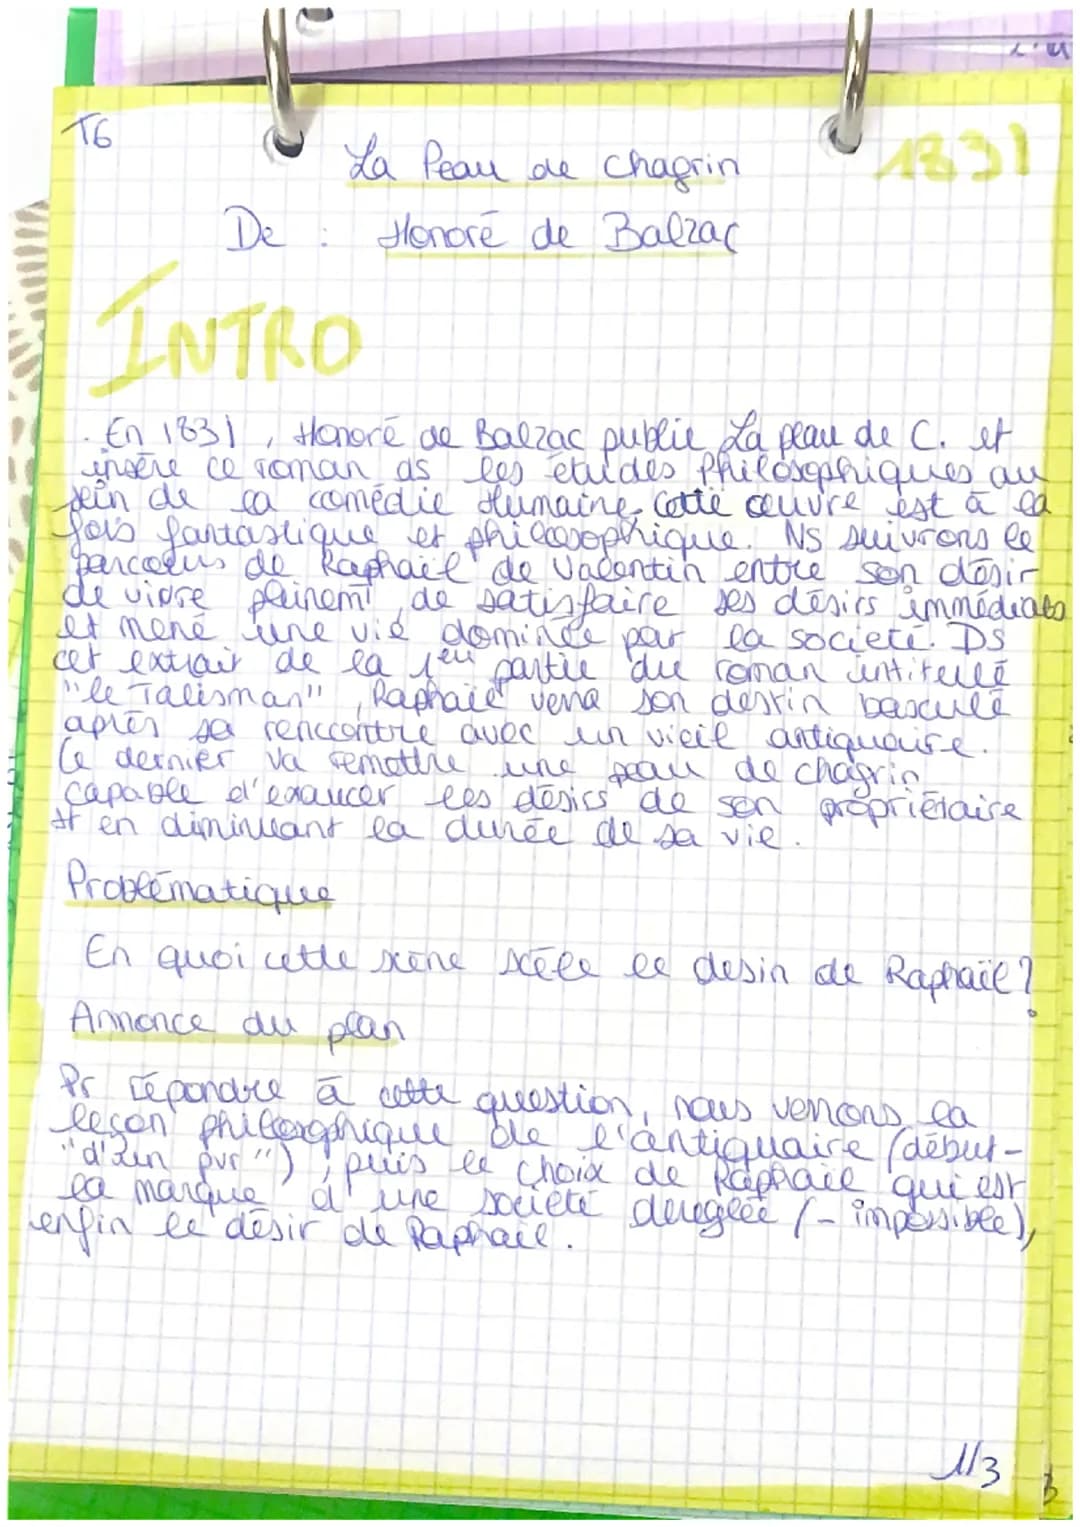 T6
La Peau de chagrin
1831
De : Honoré de Balzac
INTRO
. En 1831, Honoré de Balzac publie La peau de C. et
insère ce roman ds les études Philosophiques au
sein de la comédie Humaine. Cette œuvre est à la
fois fantastique et philosophique. Ns suivrons le
parcours de Raphaël de Valentin entre son désir
de vivre pleinemt, de satisfaire ses désirs immédiats
et mené une vie dominée par la societé. Ds
cet extrait de la 1ère partie du roman intitullé
"le Talisman", Raphaël verra son destin basculé
après sa rencontre avec un vieil antiquaire.
Ce dernier va remettre une peau de chagrin
capable d'exaucer les désirs de son propriétaire
et en diminuant la durée de sa vie.
Problématique
En quoi cette scène scèle le desin de Raphaël ?
Annonce du plan
Pr répondre à cette question, nous verrons la
leçon philosophique de l'antiquaire (début-
"d'un pur"), puis le choix de Raphaël qui est
la marque d'une société dereglée (- impossible),
enfin le désir de Raphaël.
1/3